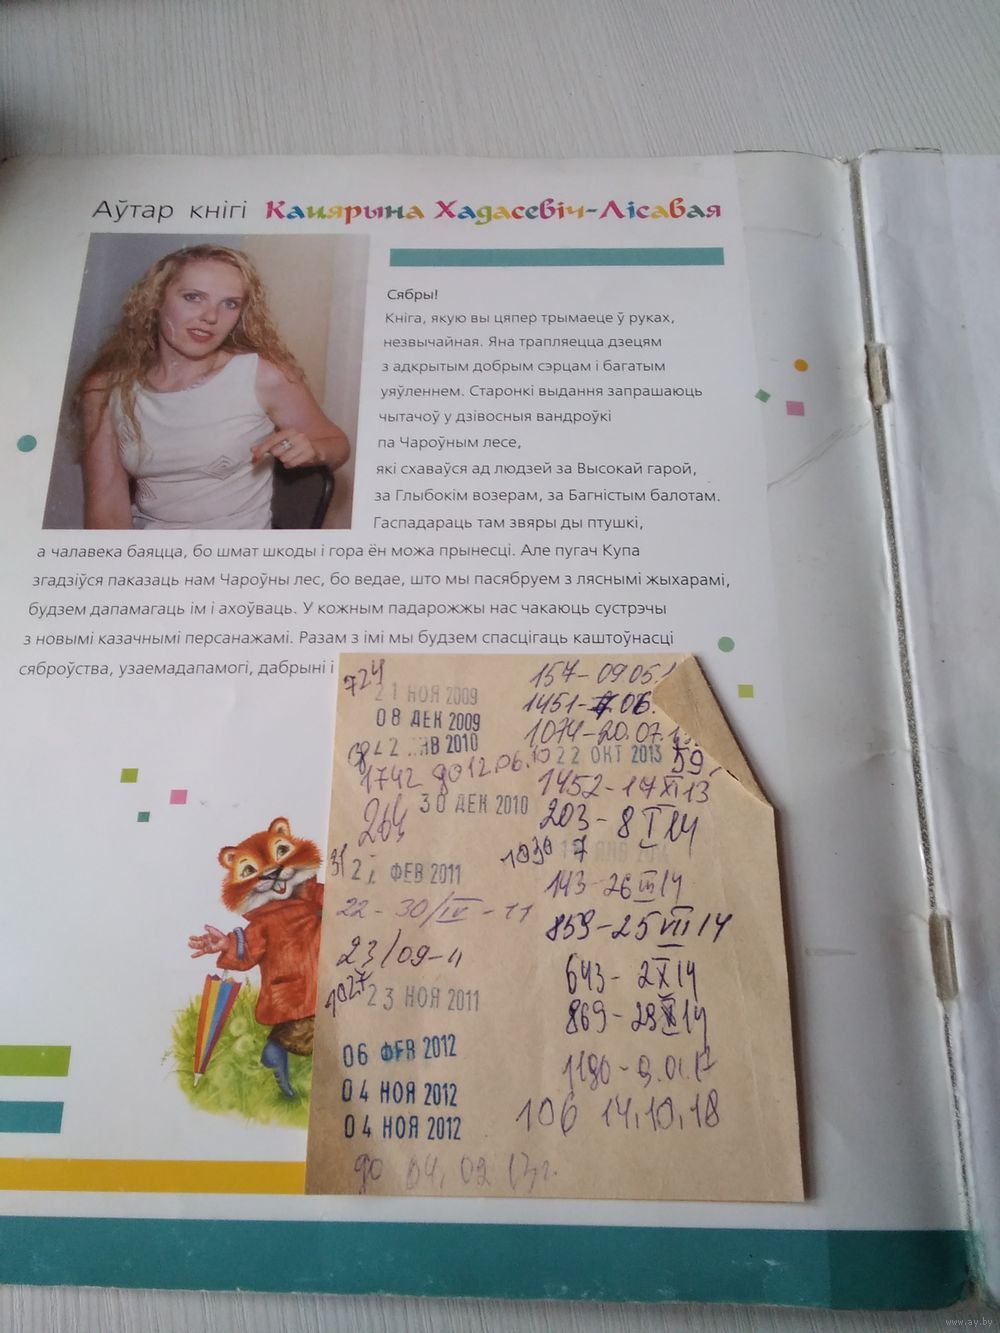 Аўтар кнігі Кацярына Хадасевіч-Лісавая
Сябры!
Кніга, якую вы цяпер трымаеце ў руках,
незвычайная. Яна трапляецца дзецям
з адкрытым добрым сэрцам і багатым
уяўленнем. Старонкі выдання запрашаюць
чытачоў у дзівосныя вандроўкі
па Чароўным лесе,
які схаваўся ад людзей за Высокай гарой,
за Глыбокім возерам, за Багністым балотам.
Гаспадараць там звяры ды птушкі,
а чалавека баяцца, бо шмат шкоды і гора ён можа прынесці. Але пугач Купа
згадзіўся паказаць нам Чароўны лес, бо ведае, што мы пасябруем з ляснымі жыхарамі,
будзем дапамагаць ім і ахоўваць. У кожным падарожжы нас чакаюць сустрэчы
з новымі казачнымі персанажамі. Разам з імі мы будзем спасцігаць каштоўнасці
сяброўства, узаемадапамогі, дабрыні і
724
21 НОЯ 2009
08 ДЕК 2009
2010
1742 до 12.06.10
30 ДЕК 2010
264
31
2 ФЕВ 2011
22-30/IV-11
23/09-11
1027
23 НОЯ 2011
06 ФЕВ 2012
04 НОЯ 2012
04 НОЯ 2012
до 04.02 13г.
157-09.05.
1451- 06.
1074-20.07.
22 ОКТ 2013
59
1452-17 XI 13
203-8 I 14
1030
143-26 III 14
859-25 VII 14
643-2 X 14
869-29 X 14
1190-9.01.17
106 14.10.18
www.ay.by